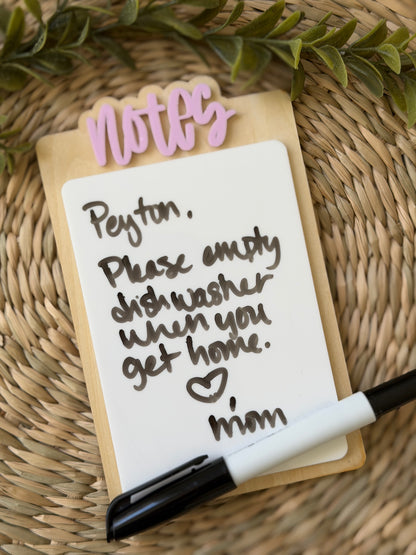 notes
Peyton,
Please empty
dishwasher
when you
get home.
mom